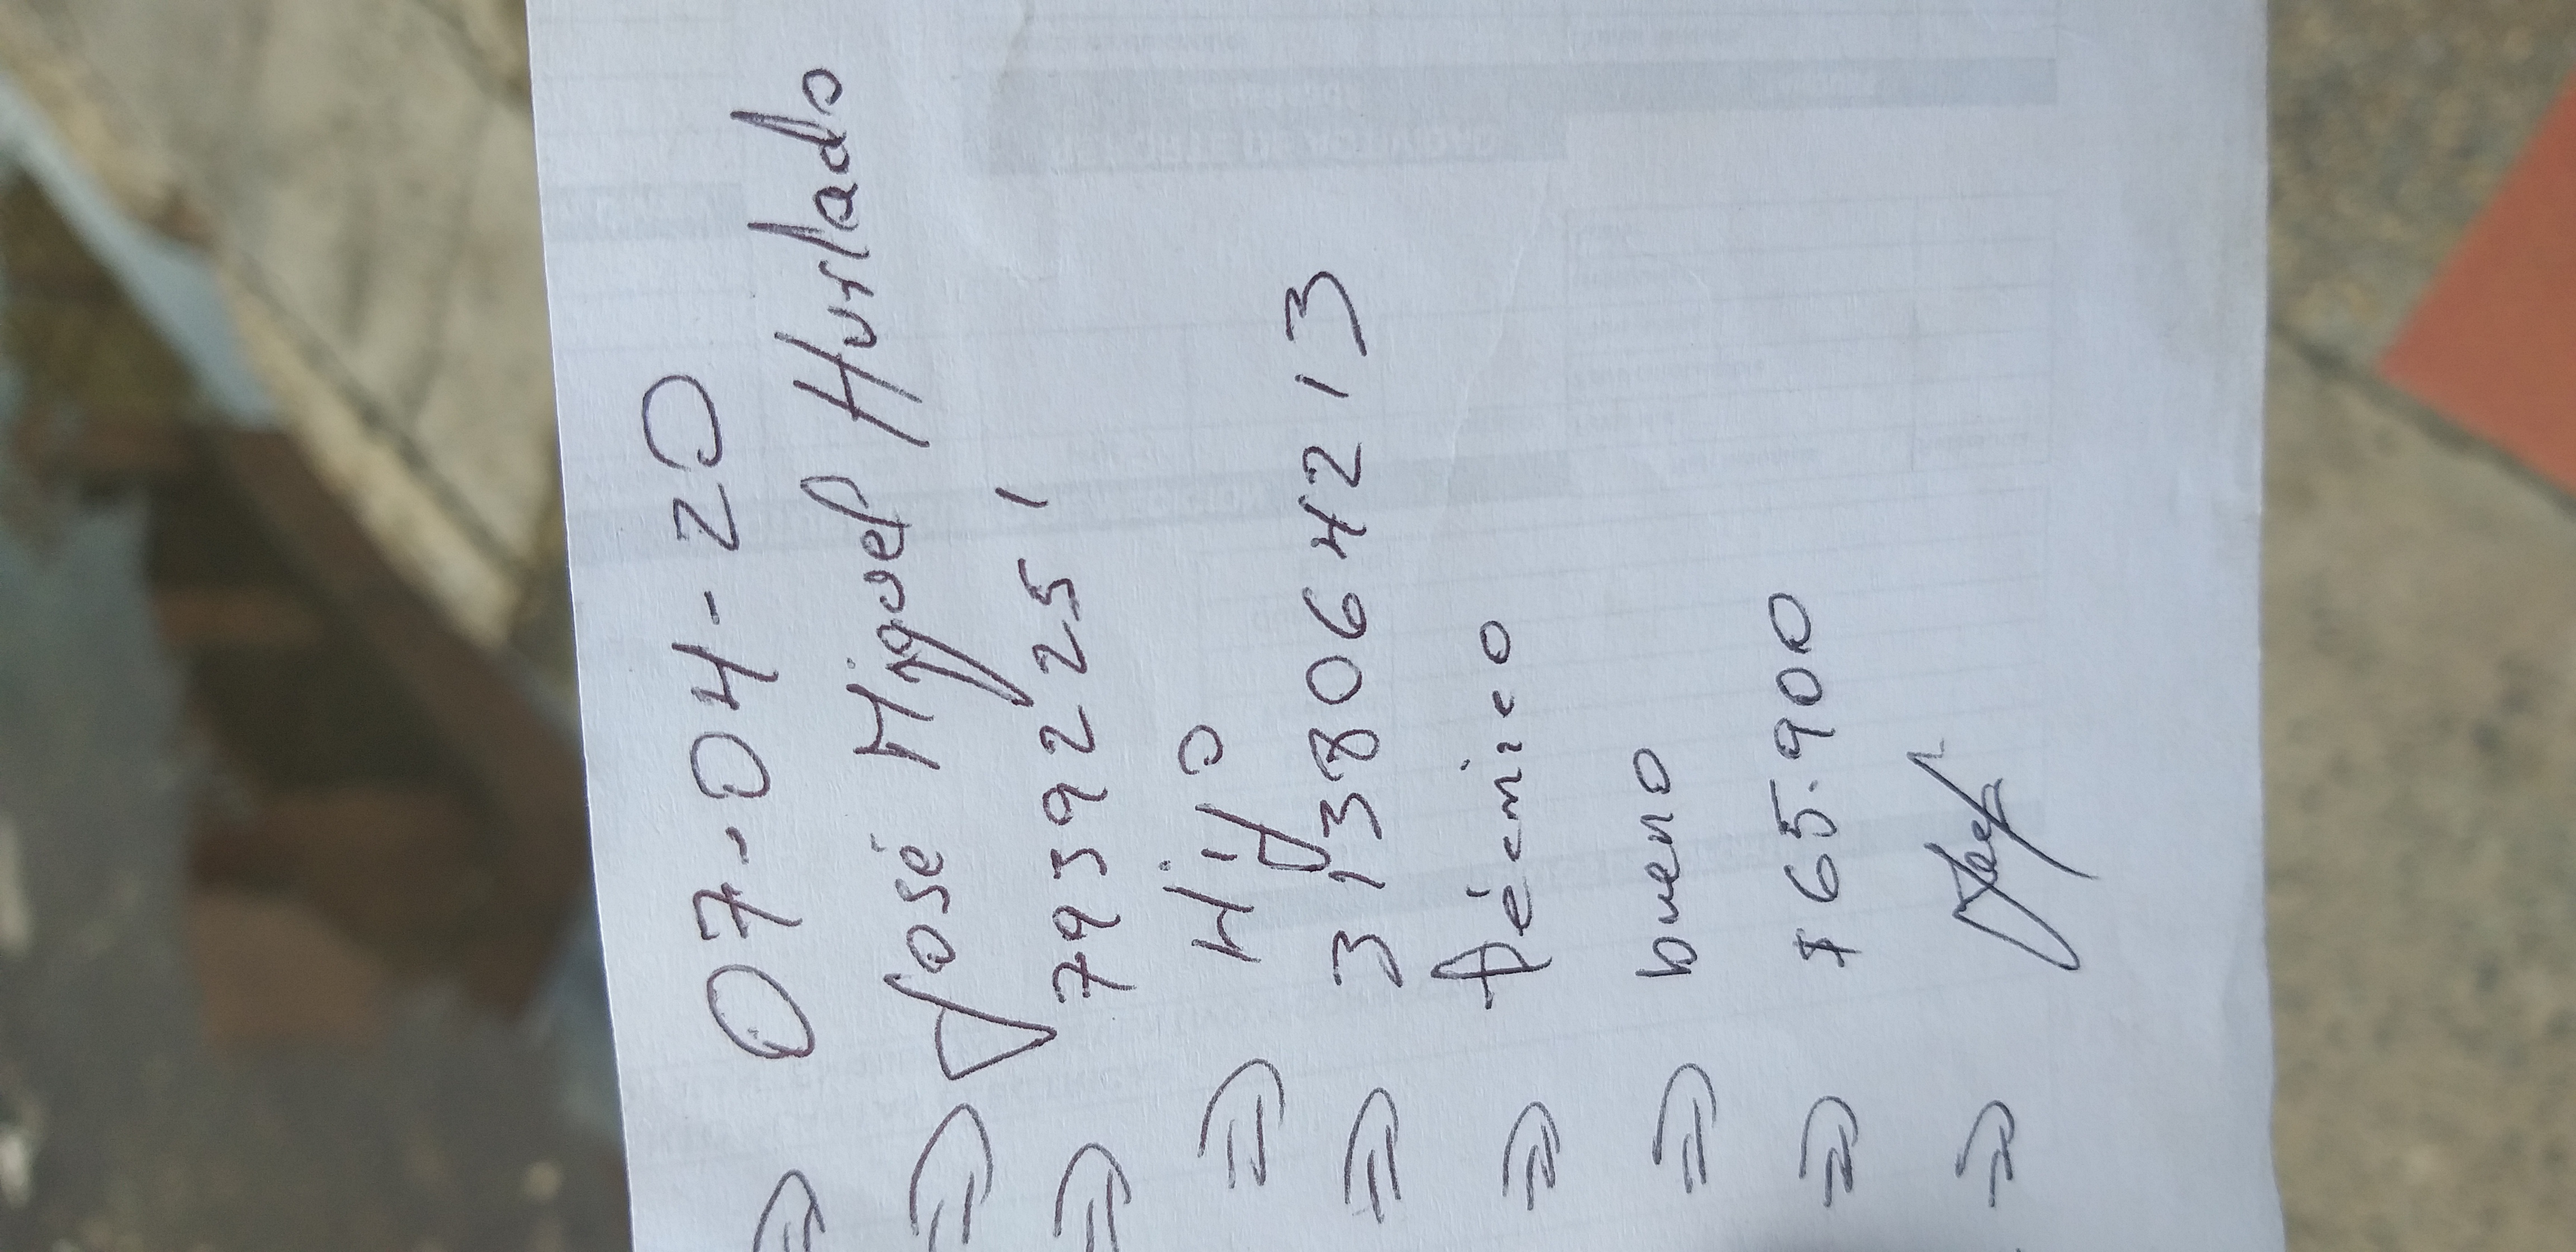 ⇒ 07-04-20
⇒ José Miguel Hurtado
⇒ 79392251
⇒ Hijo
⇒ 3138064213
⇒ técnico
⇒ bueno
⇒ $65.900
⇒